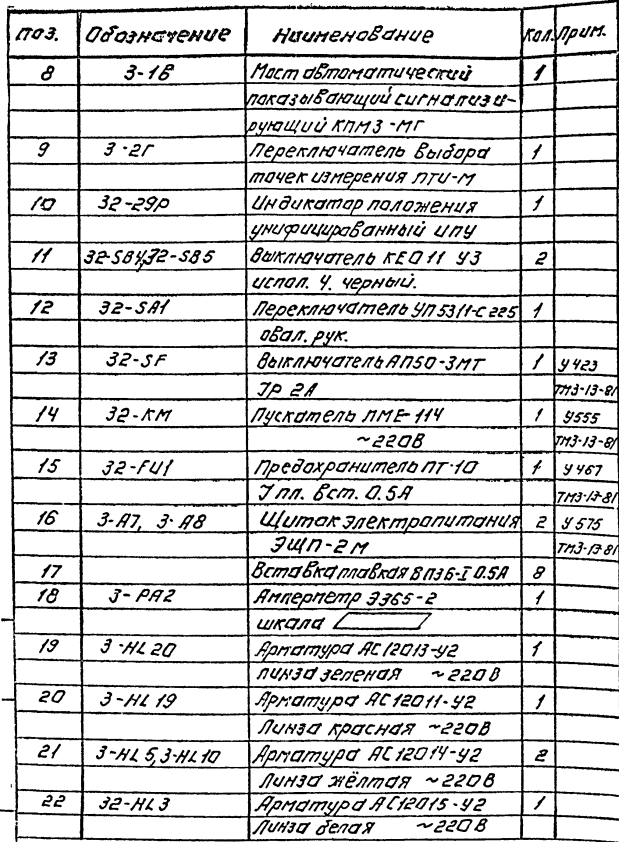 поз. Обозначение Наименование Кол. Прим.
8 3-1в Мост автоматический 1
показывающий сигнализи-
рующий КПМЗ-МГ
9 3-2г Переключатель выбора 1
точек измерения ПТИ-М
10 32-29р Индикатор положения 1
унифицированный ИПУ
11 32-SB4, 32-SB5 Выключатель КЕ011 У3 2
испол. 4. черный.
12 32-SA1 Переключатель УП5311-С225 1
овал. рук.
13 32-SF Выключатель АП50-3МТ 1 У423
Iр 2А ТМ3-13-81
14 32-КМ Пускатель ПМЕ-114 1 У555
~220В ТМ3-13-81
15 32-FU1 Предохранитель ПТ-10 1 У467
I пл. вст. 0.5А ТМ3-13-81
16 3-А7, 3-А8 Щиток электропитания 2 У575
ЭЩП-2М ТМ3-13-81
17 Вставка плавкая ВП3Б-I 0.5А 8
18 3-РА2 Амперметр Э365-2 1
шкала
19 3-HL20 Арматура АС12013-У2 1
линза зеленая ~220В
20 3-HL19 Арматура АС12011-У2 1
Линза красная ~220В
21 3-HL5, 3-HL10 Арматура АС12014-У2 2
Линза жёлтая ~220В
22 32-HL3 Арматура АС12015-У2 1
Линза белая ~220В